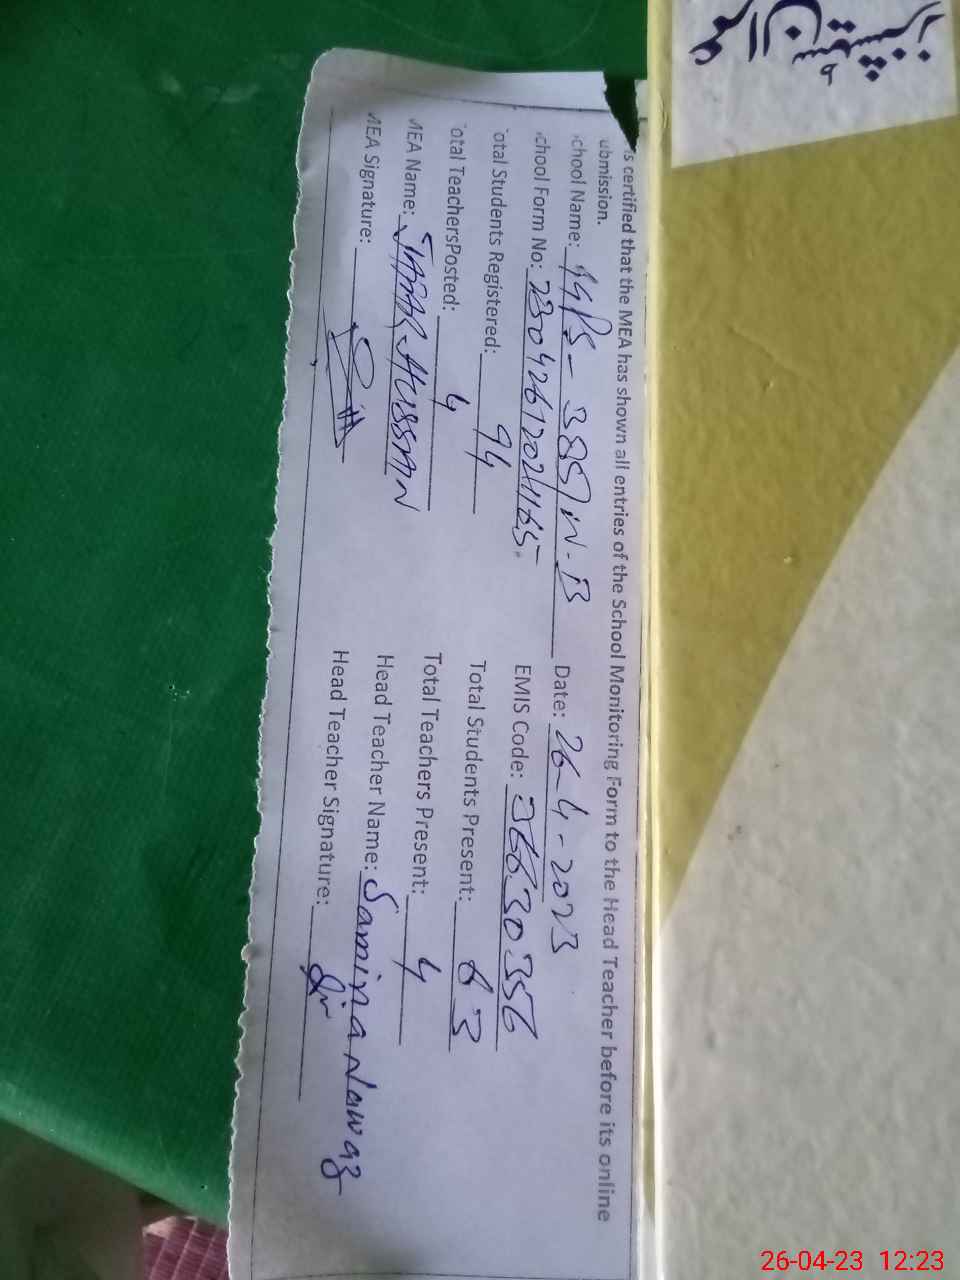 is certified that the MEA has shown all entries of the School Monitoring Form to the Head Teacher before its online
ubmission.
chool Name: GGPS - 385/W.B Date: 26-4-2023
chool Form No: 23042612021165 EMIS Code: 36630356
otal Students Registered: 94 Total Students Present: 63
otal TeachersPosted: 4 Total Teachers Present: 4
MEA Name: JAFAR HUSSAIN Head Teacher Name: Samina Nawaz
MEA Signature: Head Teacher Signature:
26-04-23 12:23